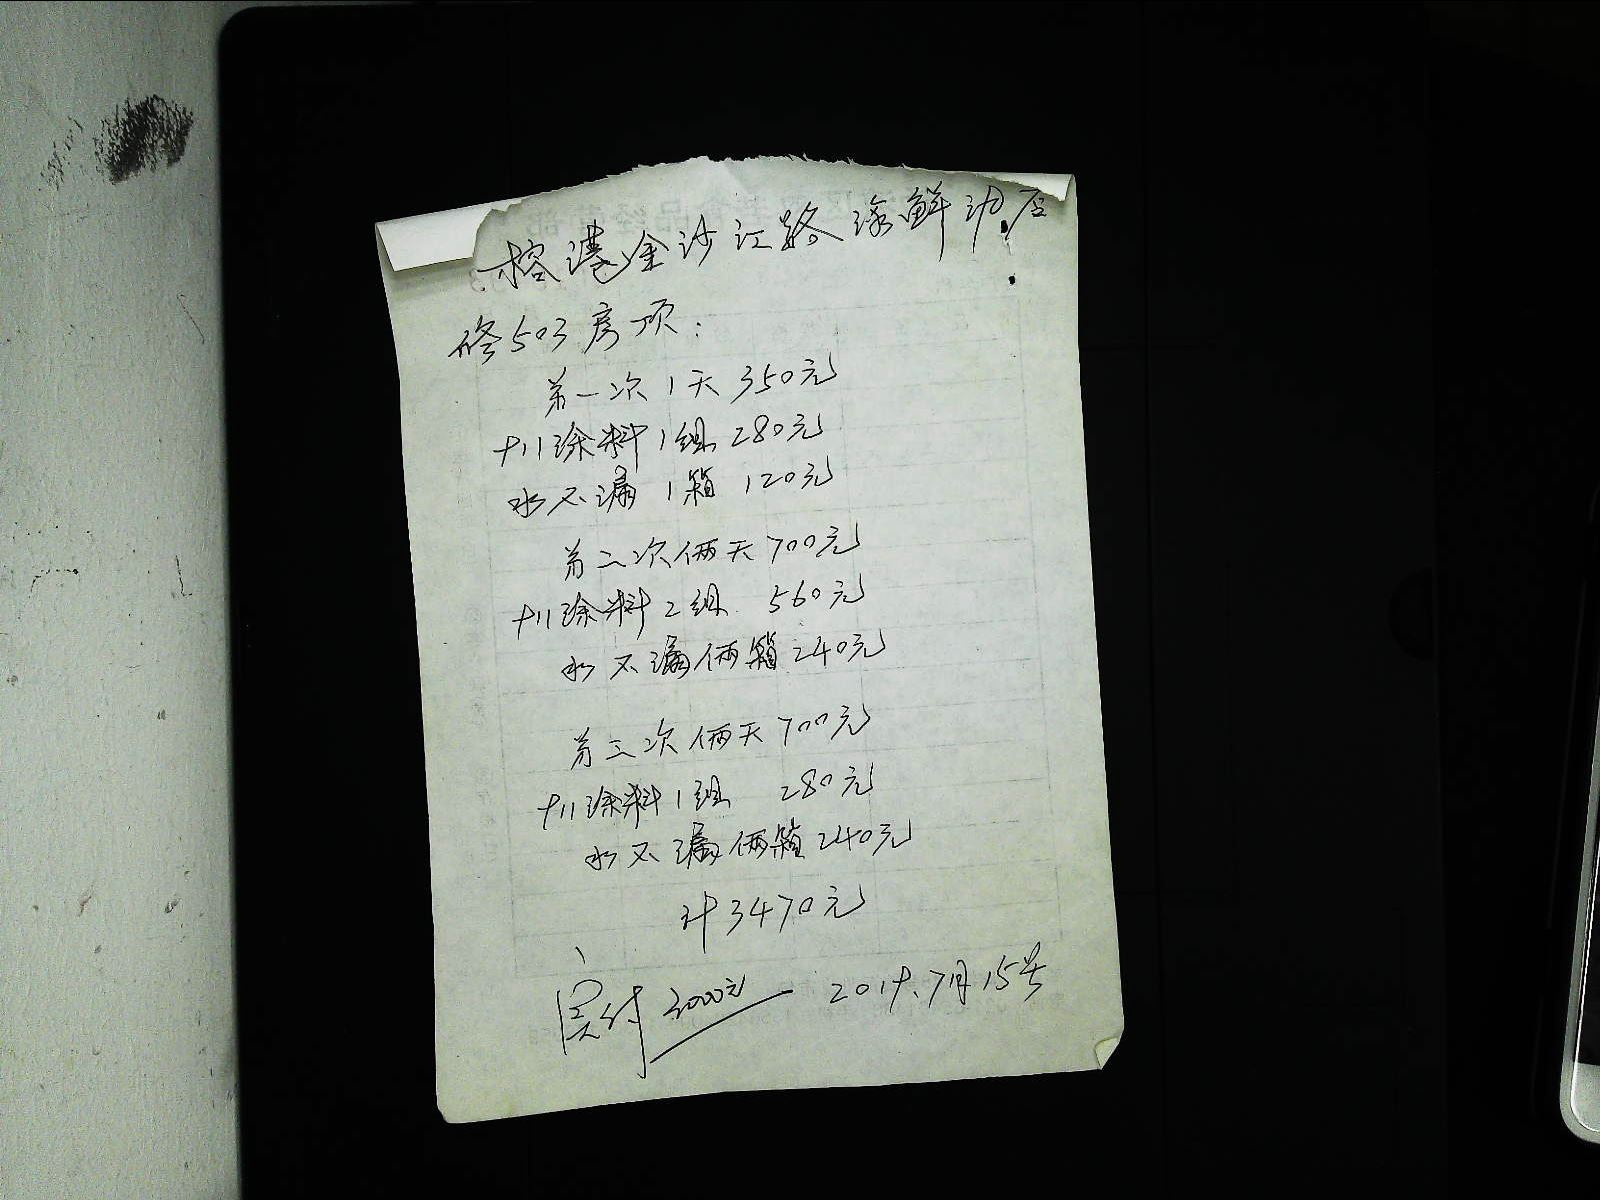 榕港金沙江路海鲜沙店
修503房顶:
第一次1天350元
十11涂料1组280元
水不漏1箱120元
第二次俩天700元
十11涂料2组 560元
水不漏俩箱240元
第三次俩天700元
十11涂料1组 280元
水不漏俩箱240元
计3470元
实付3000元 2019.7月15号